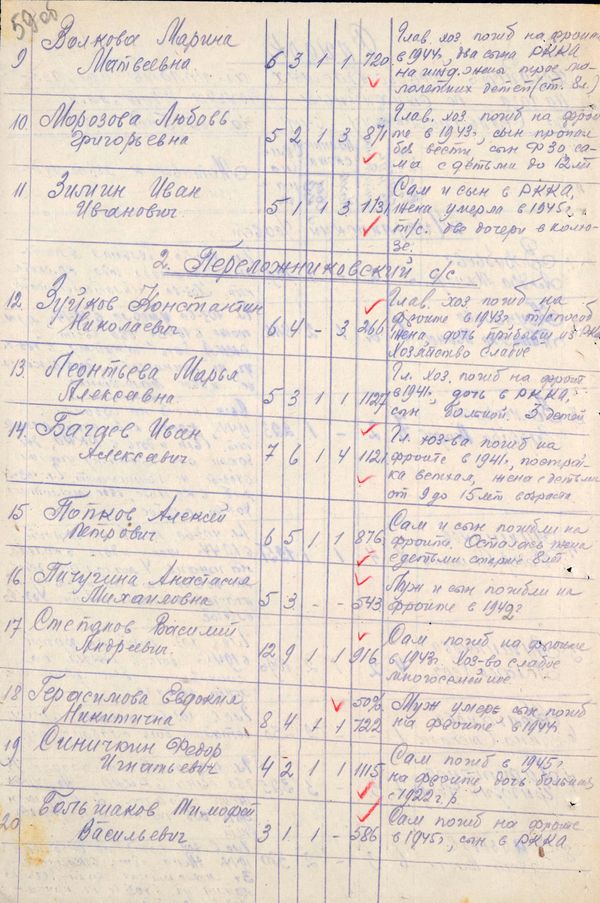 59об
9 Волкова Марина Матвеевна 6 3 1 1 720 Глав. хоз погиб на фронте
в 1944г, два сына РККА
на ижд. жены трое ма-
лолетних детей (ст. 8л)
10. Морозова Любовь Григорьевна 5 2 1 3 871 Глав. хоз погиб на фрон-
те в 1943г, сын пропал
без вести, сын ФЗО, са-
ма с детьми до 12 лет
11 Зимин Иван Иванович. 5 1 1 3 1131 Сам и сын в РККА,
жена умерла в 1945г.
т/с. две дочери в колхо-
зе.
2. Переложниковский с/с
12. Зуйков Константин Николаевич 6 4 - 3 266 Глав. хоз погиб на
фронте в 1943г. т/способ
жена, дочь прибыви из РККА
Хозяйство слабое
13. Леонтьева Марья Алексавна 5 3 1 1 1127 Гл. хоз. погиб на фронт
в 1941г., дочь в РККА,
сын больной. 3 детей
14. Багдев Иван Алексавич 7 6 1 4 1121 Гл. хоз-ва погиб на
фронте в 1941г., построй-
ка ветхая, жена с детьми
от 9 до 15 лет возраста
15 Попков Алексей Петрович 6 5 1 1 876 Сам и сын погибли на
фронте. Осталась жена
с детьми старше 8 лет
16. Пичугина Анастасия Михайловна 5 3 - - 543 Муж и сын погибли на
фронте в 1942г
17. Степанов Василий Андреевич. 12 9 1 1 916 Сам погиб на фронте
в 1943г. Хоз-во слабое
многосемейное
18 Герасимова Евдокия Никитична 8 4 1 1 50% 722 Муж умер, сын погиб
на фронте в 1944г
19 Синичкин Федор Игнатьевич 4 2 1 1 1115 Сам погиб в 1945г
на фронте, дочь больная
с 1922 г.р.
20 Большаков Тимофей Васильевич 3 1 1 - 586 Сам погиб на фронте
в 1945г, сын в РККА